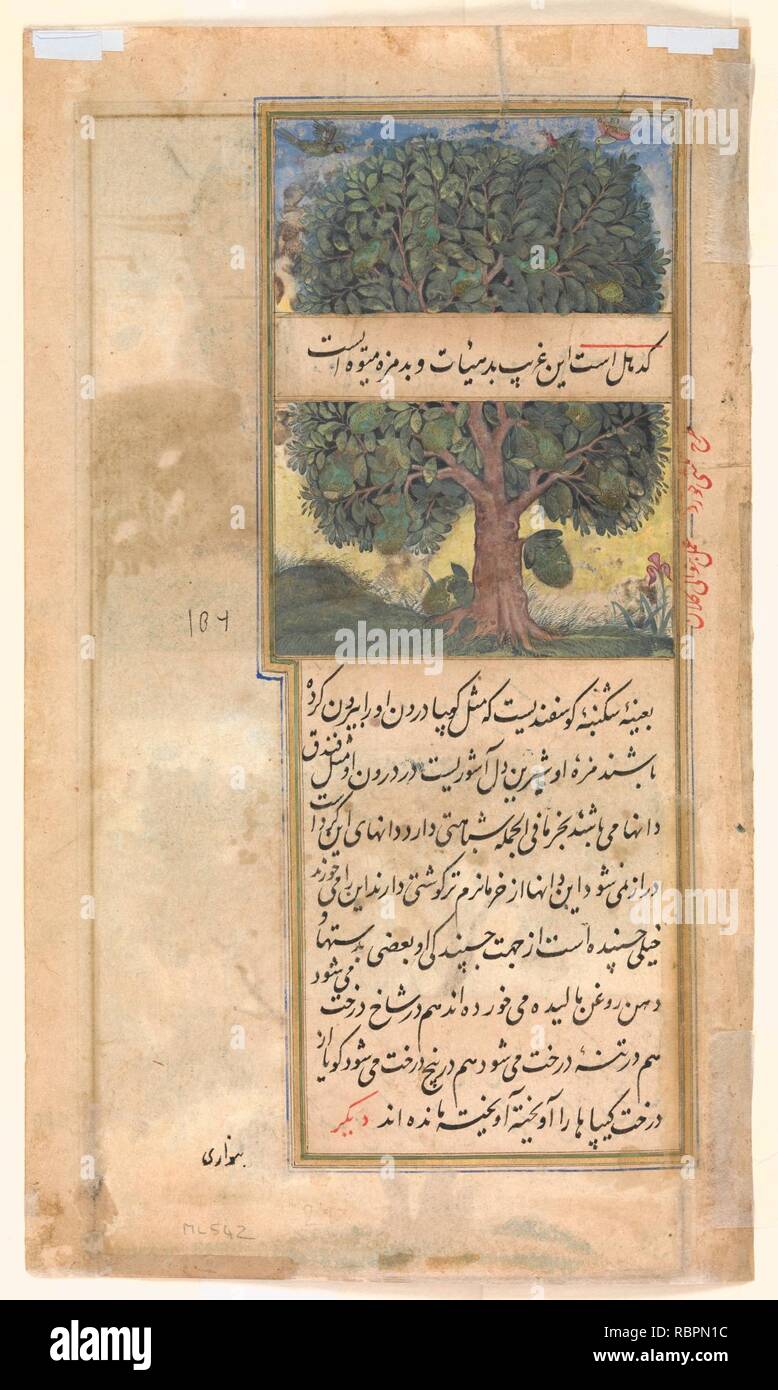 کدهل است این غریب بدهیأت و بدمزه میوه ایست
بعینه شکنبهٔ کوسفندیست که مثل کیپا درون او را بیرون کرده
باشند مزه او شیرین دل آشوریست در درون او مثل فندق
دانها می باشند بخرما فی الجمله شباهتی دارد دانهای این کرد است
دراز نمی شود این دانها از خرما نرم تر کوشتی دارند این را می خورند
خیلی چسپنده است از جهت چسپندکی او بعضی بدستها و
دهن روغن مالیده می خورده اند هم در شاخ درخت می شود
هم در تنهٔ درخت می شود هم در بیخ درخت می شود کویا از
درخت کیپاها را آویخته آویخته مانده اند دیکر
184
ML542
a alamy
alamy
Image ID: RBPN1C
www.alamy.com